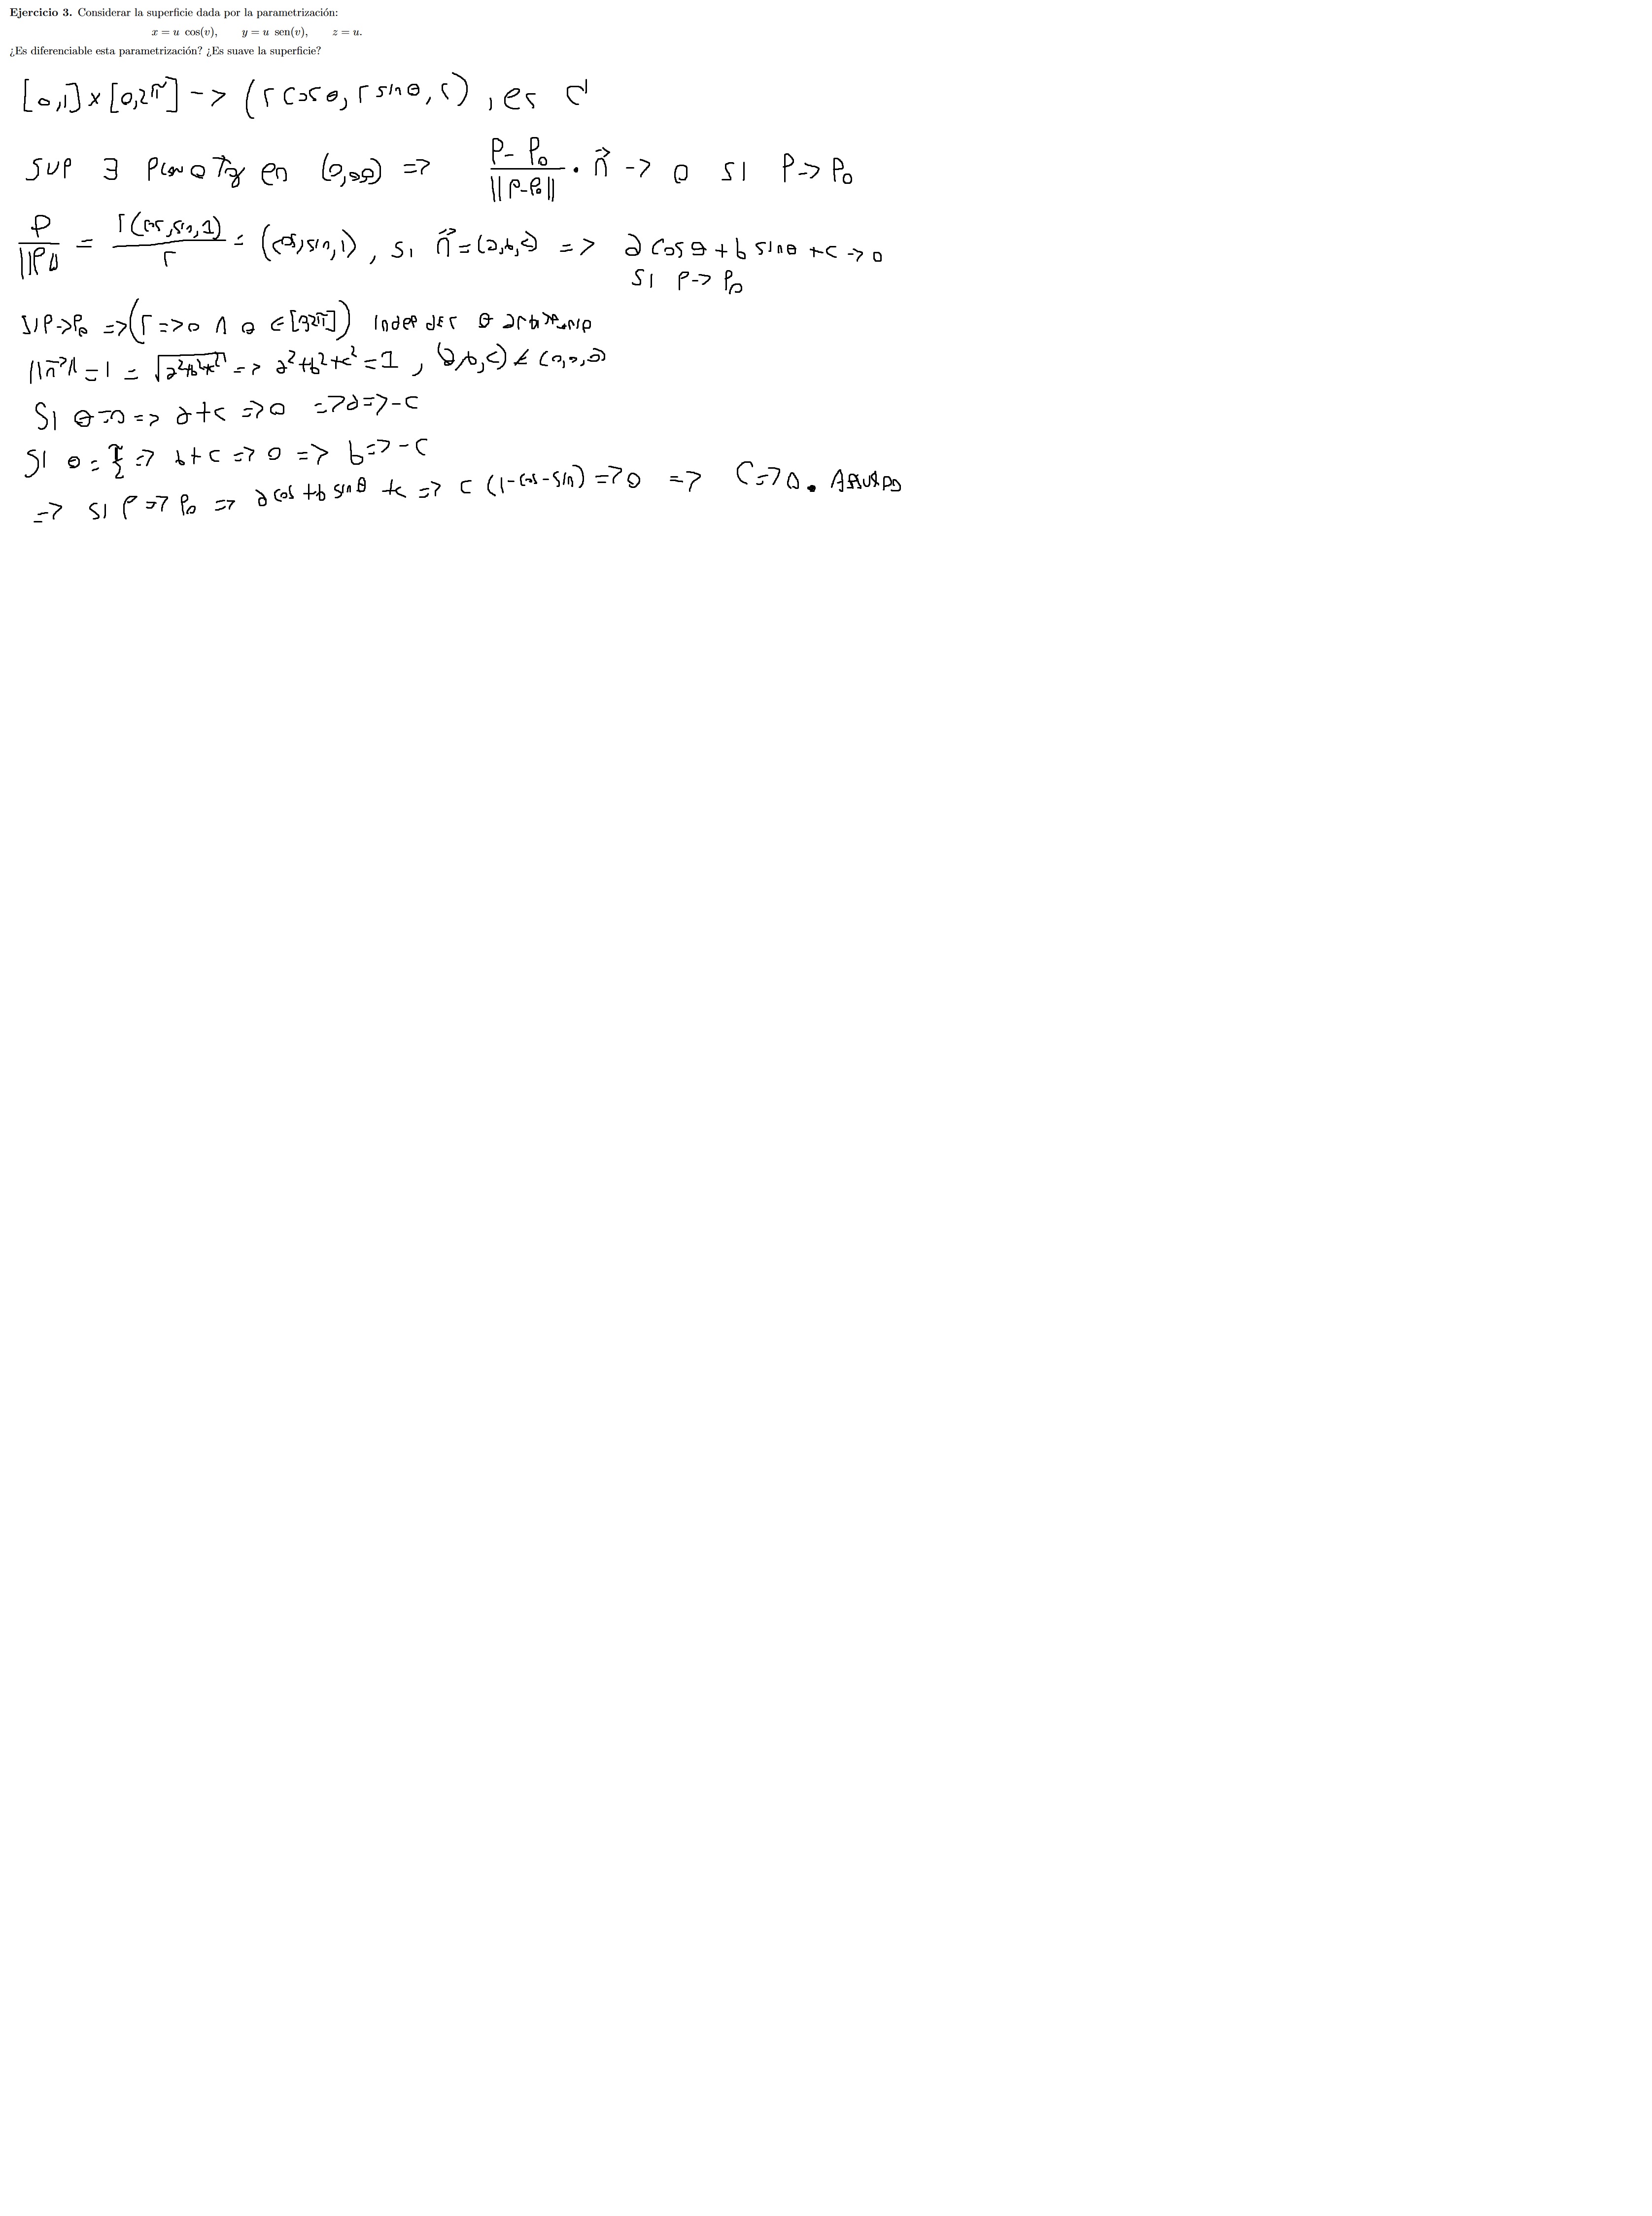 Ejercicio 3. Considerar la superficie dada por la parametrización:
x = u cos(v), y = u sen(v), z = u.
¿Es diferenciable esta parametrización? ¿Es suave la superficie?
[0,1] x [0,2π] -> (r cos θ, r sin θ, r), es C¹
SUP ∃ Plano Tg en (0,0,0) => P-P₀/||P-P₀|| · n⃗ -> 0 SI P->P₀
P/||P|| = r(cos,sin,1)/r = (cos,sin,1), si n⃗ = (a,b,c) => a cos θ + b sin θ + c -> 0
SI P->P₀
SI P->P₀ => (r => 0 ∧ θ ∈ [0,2π]) indep de r θ arbitrario
||n⃗|| = 1 = √a²+b²+c² => a²+b²+c² = 1, (a,b,c) ≠ (0,0,0)
SI θ=0 => a+c => 0 => a => -c
SI θ = π/2 => b+c => 0 => b => -c
=> SI P => P₀ => a cos + b sin θ + c => c (1-cos-sin) => 0 => C => 0. Absurdo